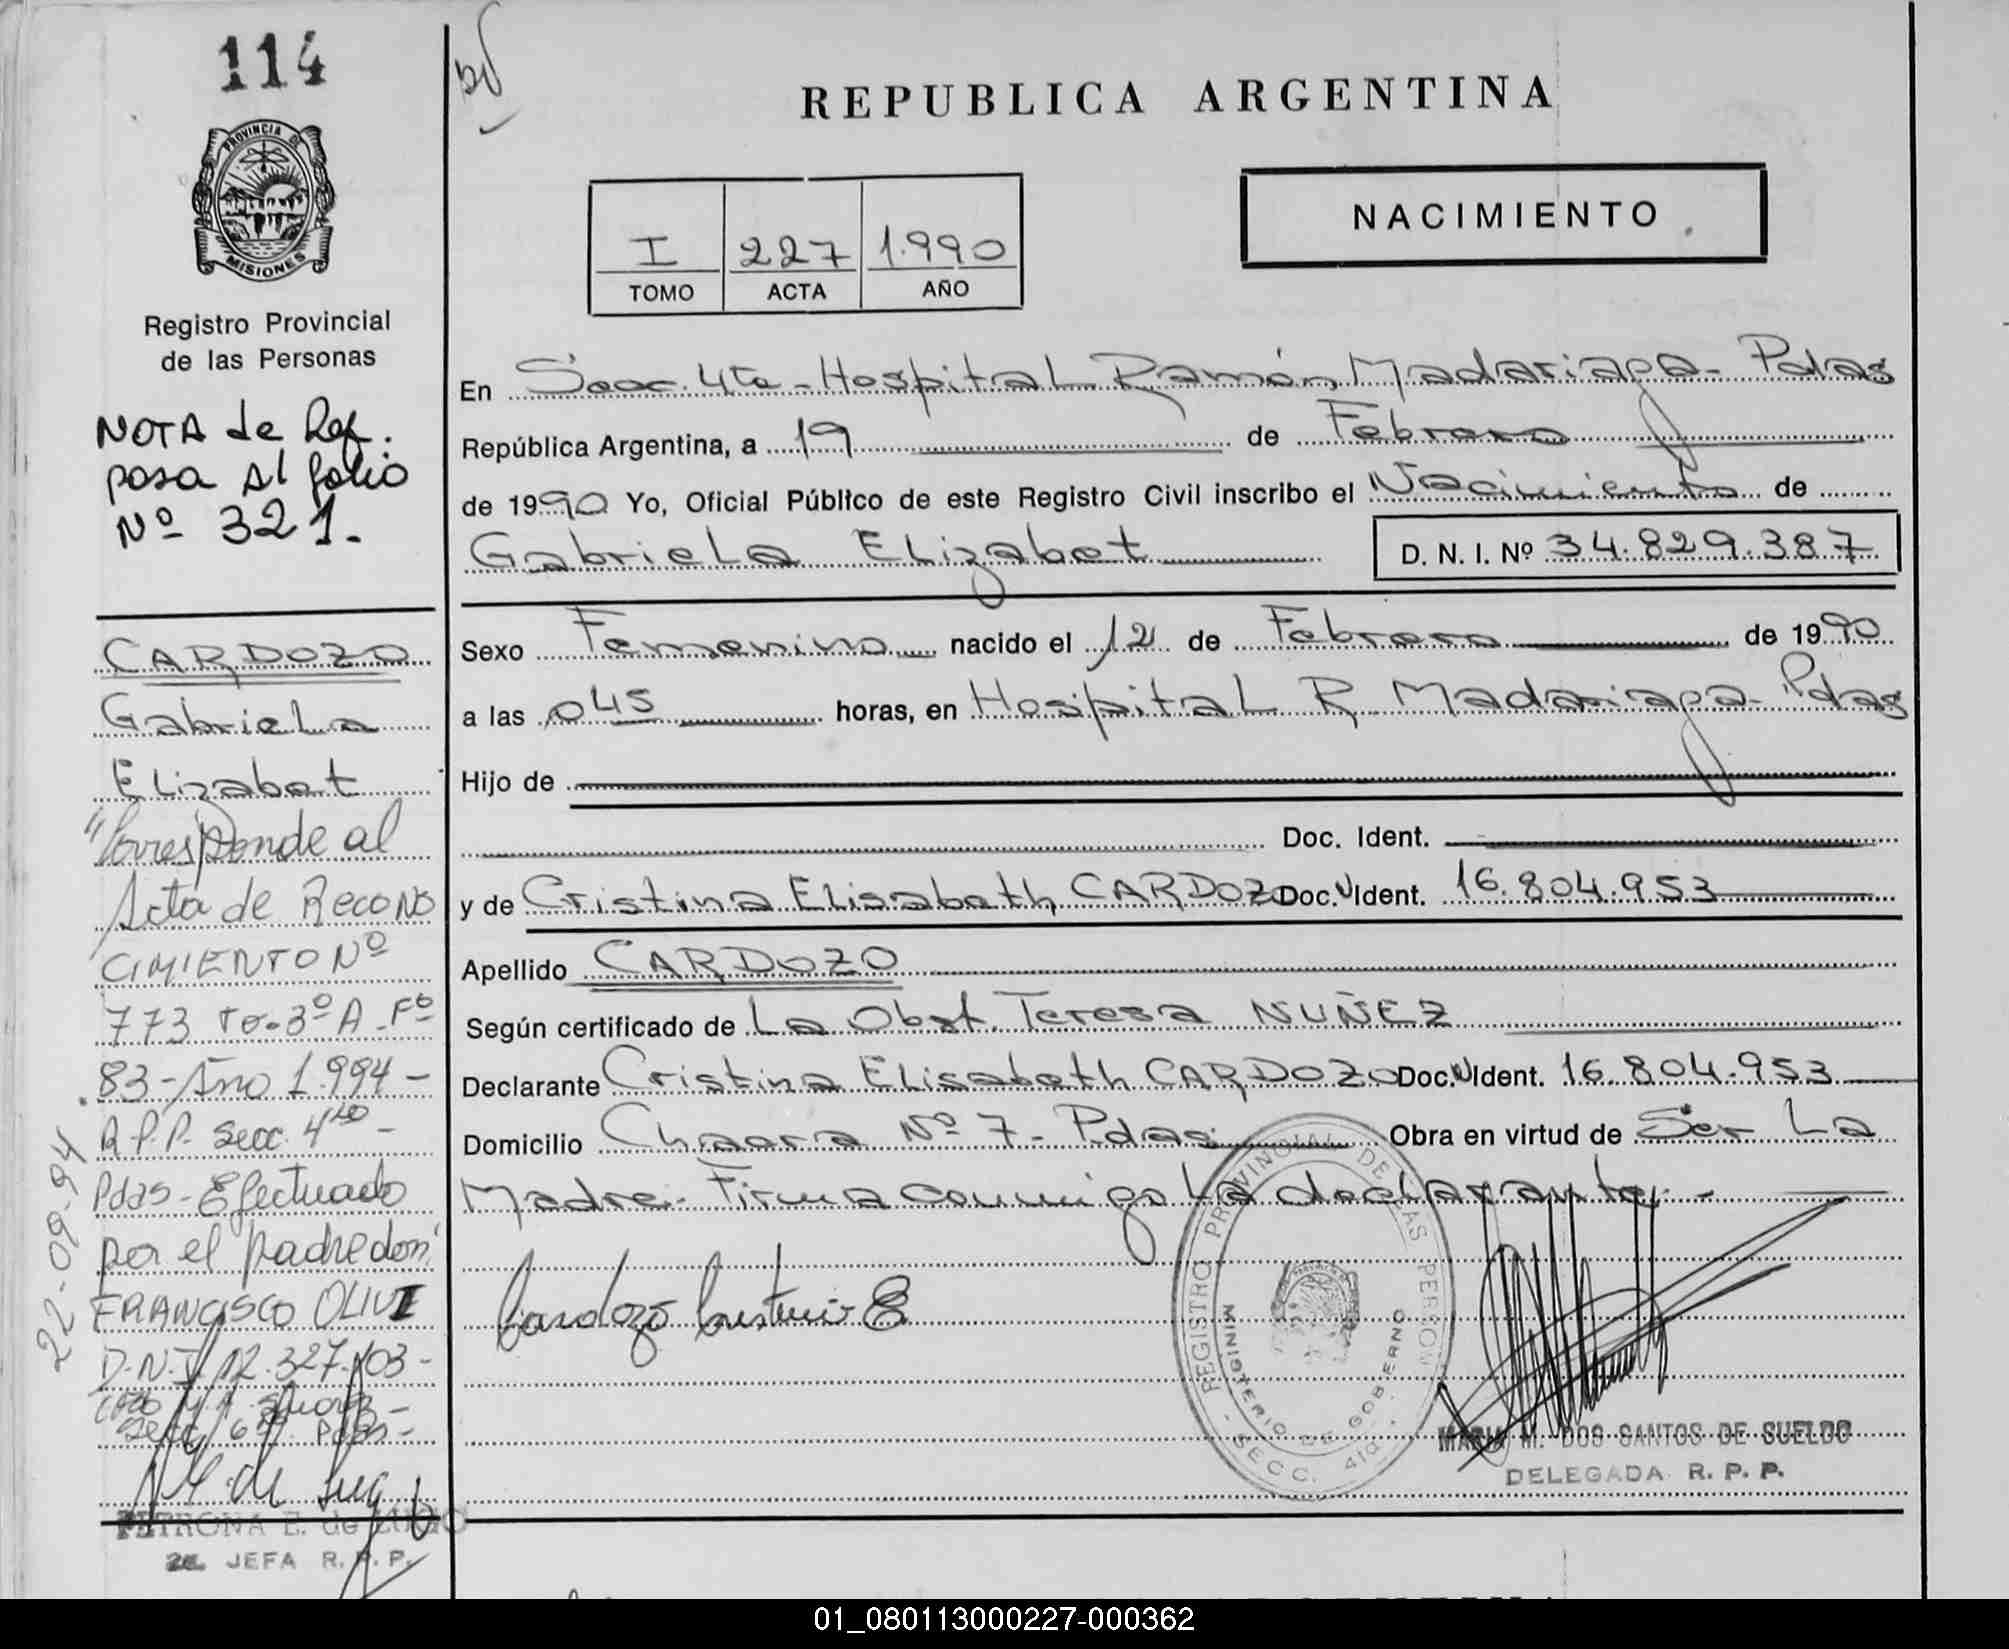 114
REPUBLICA ARGENTINA
PROVINCIA DE
MISIONES
Registro Provincial
de las Personas
NOTA de Ref.
pasa al folio
Nº 321.
I 227 1.990
TOMO ACTA AÑO
NACIMIENTO
En Secc. 4ta - Hospital Ramón Madariaga - Pdas
República Argentina, a 19 de Febrero
de 1990 Yo, Oficial Público de este Registro Civil inscribo el Nacimiento de
Gabriela Elizabet D. N. I. Nº 34.829.387
Sexo Femenino nacido el 12 de Febrero de 1990
a las 045 horas, en Hospital R. Madariaga - Pdas
Hijo de
Doc. Ident.
y de Cristina Elisabeth CARDOZO Doc. Ident. 16.804.953
Apellido CARDOZO
Según certificado de La Obst. Teresa NUÑEZ
Declarante Cristina Elisabeth CARDOZO Doc. Ident. 16.804.953
Domicilio Chacra Nº 7 - Pdas Obra en virtud de Ser La
Madre - Firma conmigo La declarante, -
Cardozo Cristina E
REGISTRO PROVINCIAL DE LAS PERSONAS
MINISTERIO DE GOBIERNO
SECC. 4ta
MARIA M. DOS SANTOS DE SUELDO
DELEGADA R. P. P.
CARDOZO
Gabriela
Elizabet
"Corresponde al
Acta de RECONO
CIMIENTO Nº
773 To. 3º A - Fº
83 - Año 1.994 -
R.P.P. Secc. 4ta -
Pdas - Efectuado
por el padre don
FRANCISCO OLIVI
D.N.I. 12.327.103 -
Secc. 6ta Pdas -
22-09-94
PETRONA E. de LUGO
JEFA R. P. P.
01_080113000227-000362